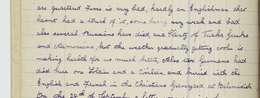 are quartered. Fever is very bad, hardly an Englishman that
hasn't had a touch of it, some being very weak and bad
also several Prussians have died and Plenty of Turks Greeks
and Armenians, but the weather gradually getting cooler is
making health for us much better, Also two Germans had
died here one Soldier and a Civilian and buried with the
English and French in the Christians Graveyard at Belemedik
On the 24th of September a